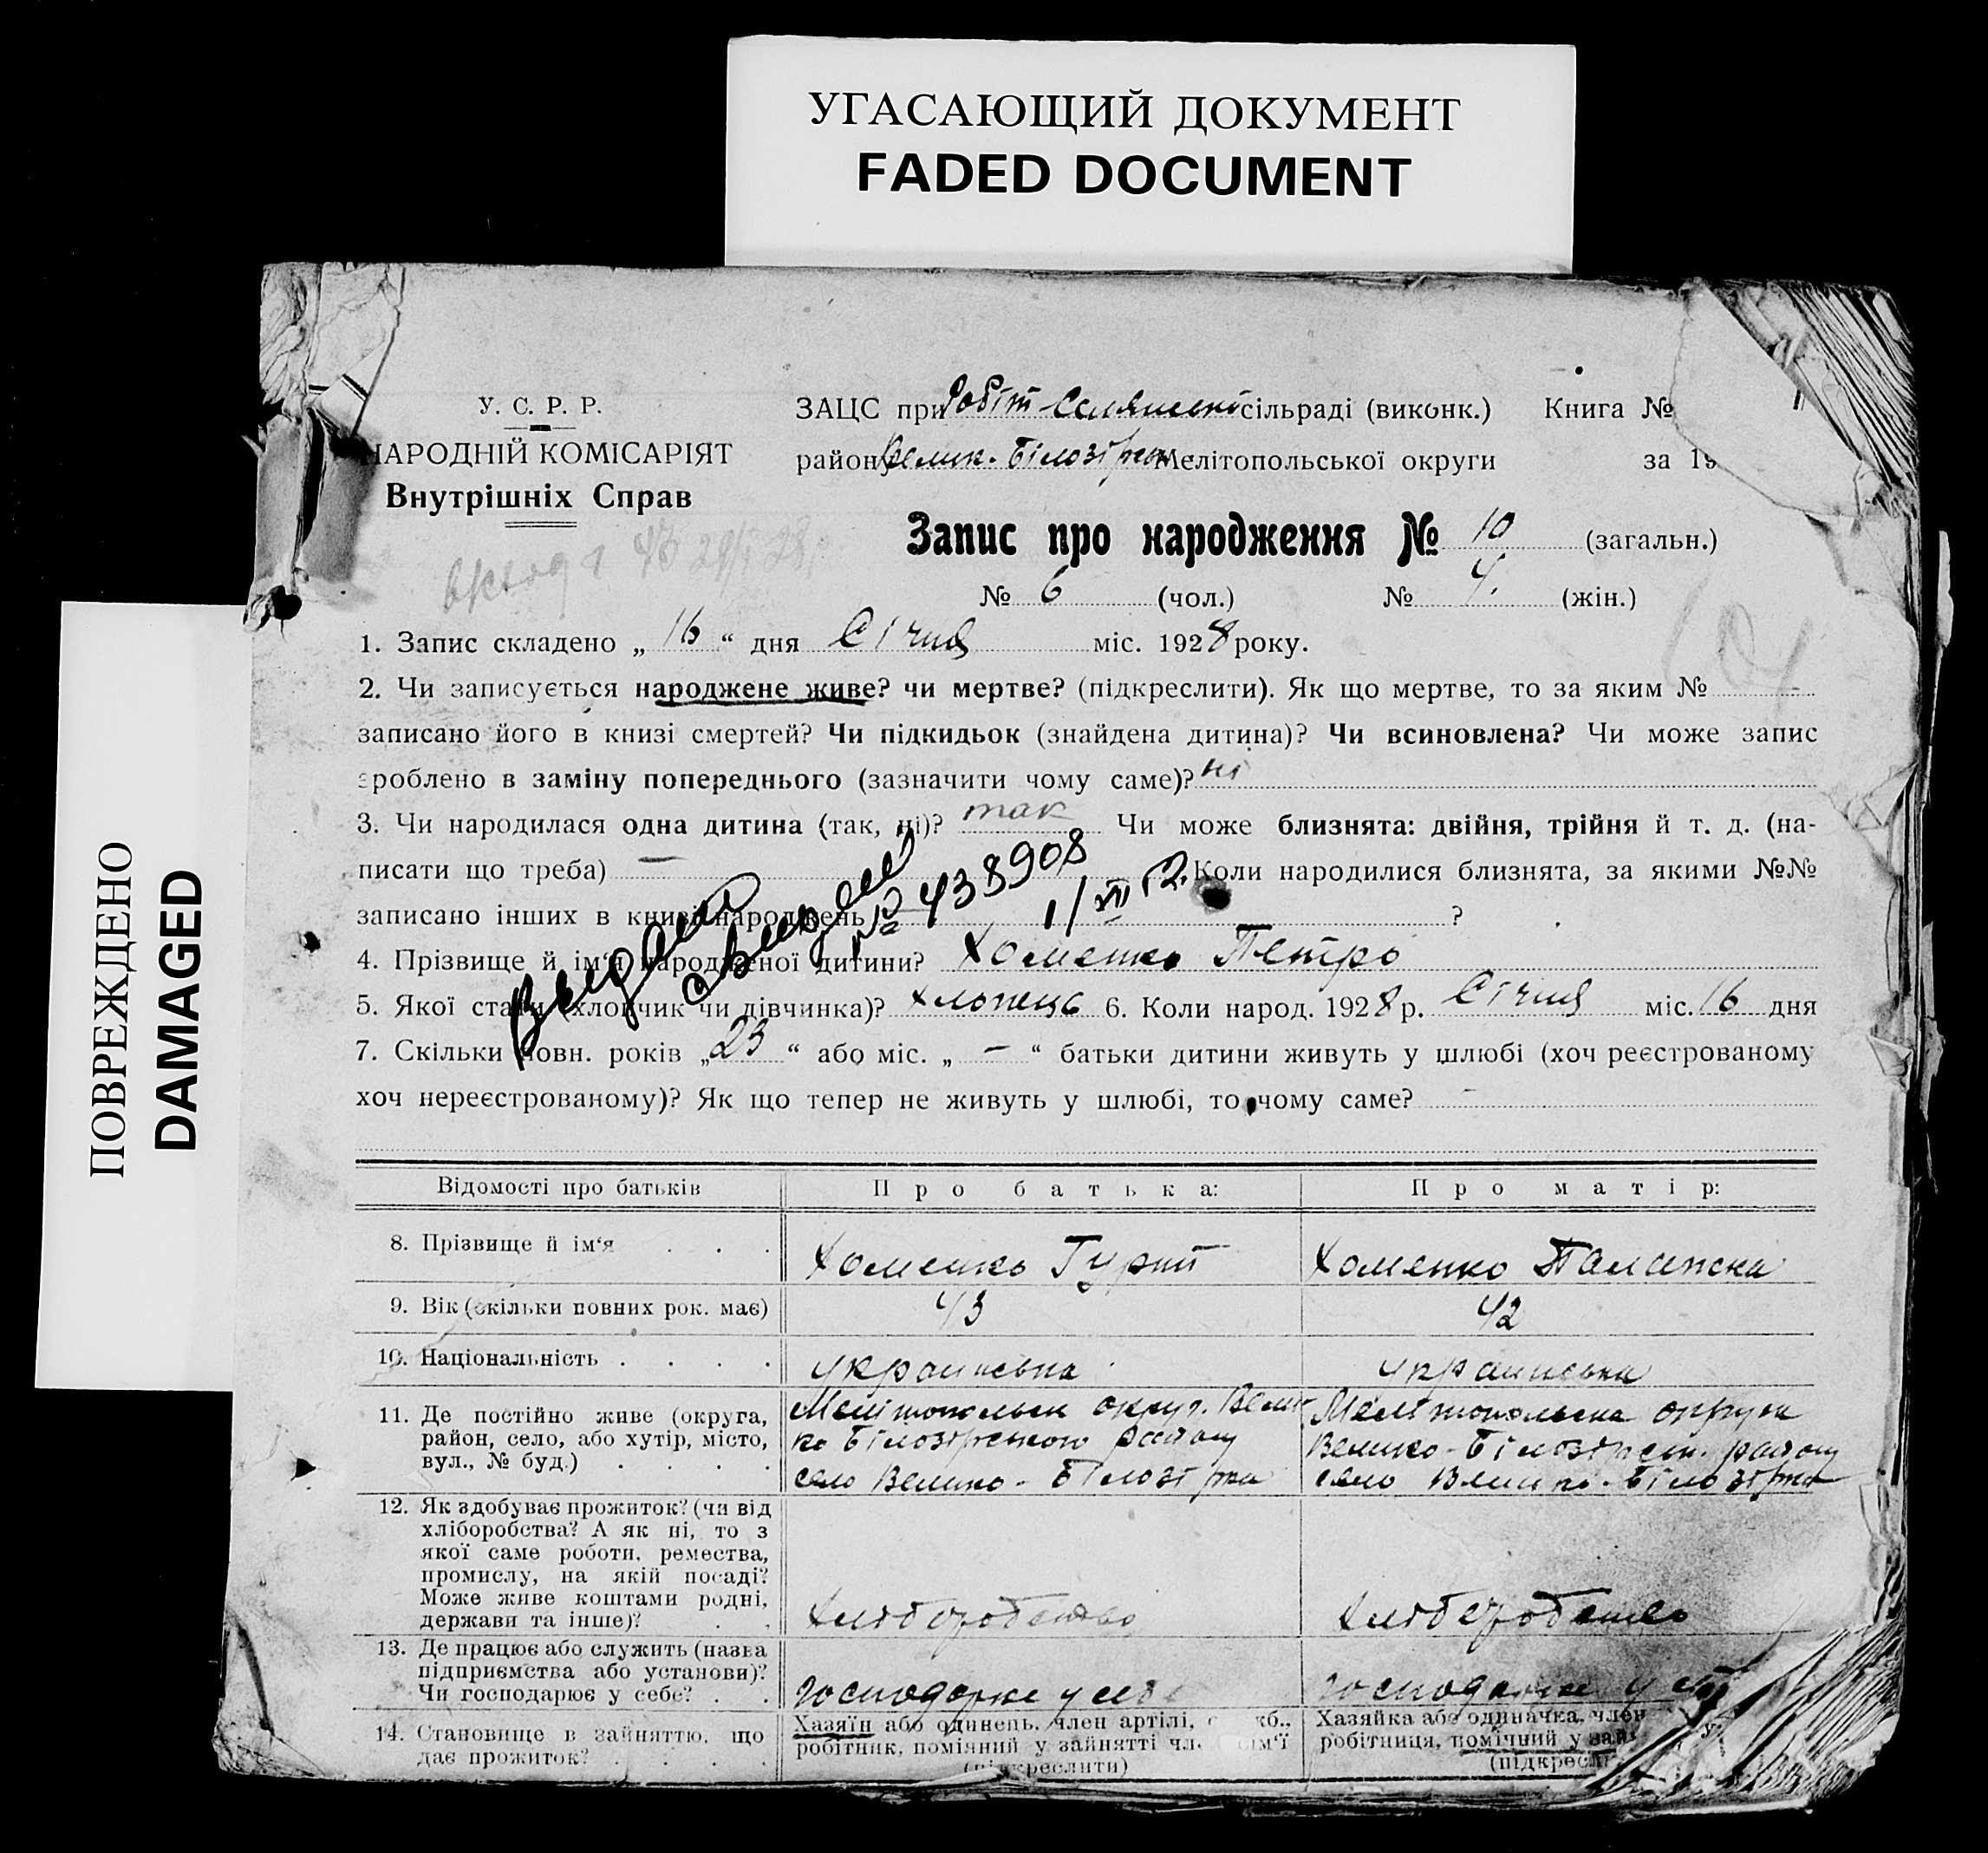 УГАСАЮЩИЙ ДОКУМЕНТ
FADED DOCUMENT
ПОВРЕЖДЕНО
DAMAGED
У. С. Р. Р.
НАРОДНІЙ КОМІСАРІЯТ
Внутрішніх Справ
ЗАЦС при Робіт-Селянській сільраді (виконк.) Книга №
район Велик. Білозірськ Мелітопольської округи за 19
Запис про народження № 10 (загальн.)
№ 6 (чол.) № 4. (жін.)
1. Запис складено „ 16 “ дня Січня міс. 1928 року.
2. Чи записується народжене живе? чи мертве? (підкреслити). Як що мертве, то за яким №
записано його в книзі смертей? Чи підкидьок (знайдена дитина)? Чи всиновлена? Чи може запис
зроблено в заміну попереднього (зазначити чому саме)? ні
3. Чи народилася одна дитина (так, ні)? так Чи може близнята: двійня, трійня й т. д. (на-
писати що треба) — Коли народилися близнята, за якими №№
записано інших в книзі народжень ?
Выдано
№ 438908
1/VII
4. Прізвище й ім‘я народженої дитини? Хоменко Петро
5. Якої статі (хлопчик чи дівчинка)? хлопець 6. Коли народ. 1928 р. Січня міс. 16 дня
7. Скільки повн. років „ 23 “ або міс. „ – “ батьки дитини живуть у шлюбі (хоч реєстрованому
хоч нереєстрованому)? Як що тепер не живуть у шлюбі, то чому саме? –
Відомості про батьків
Про батька:
Про матір:
8. Прізвище й ім‘я . . .
Хоменко Гурій
Хоменко Палажка
9. Вік (скільки повних рок. має)
43
42
10. Національність . . . .
украинська
украинська
11. Де постійно живе (округа,
район, село, або хутір, місто,
вул., № буд.) . . . .
Мелітопольск округ. Вели-
ко Білозірського району
село Велико-Білозірка
Мелітопольска округа
Велико-Білозірськ. району
село Велико-Білозірка
12. Як здобуває прожиток? (чи від
хліборобства? А як ні, то з
якої саме роботи, ремества,
промислу, на якій посаді?
Може живе коштами родні,
держави та інше)? . .
Хліборобство
Хліборобство
13. Де працює або служить (назва
підприємства або установи)?
Чи господарює у себе? . .
господарює у себе
господарює у
14. Становище в занняттю, що
дає прожиток? . . . .
Хазяїн або одинець, член артілі,
робітник, помічний у зайнятті чл. сім‘ї
(підкреслити)
Хазяйка або одиначка, член
робітниця, помічний у зай
(підкресл